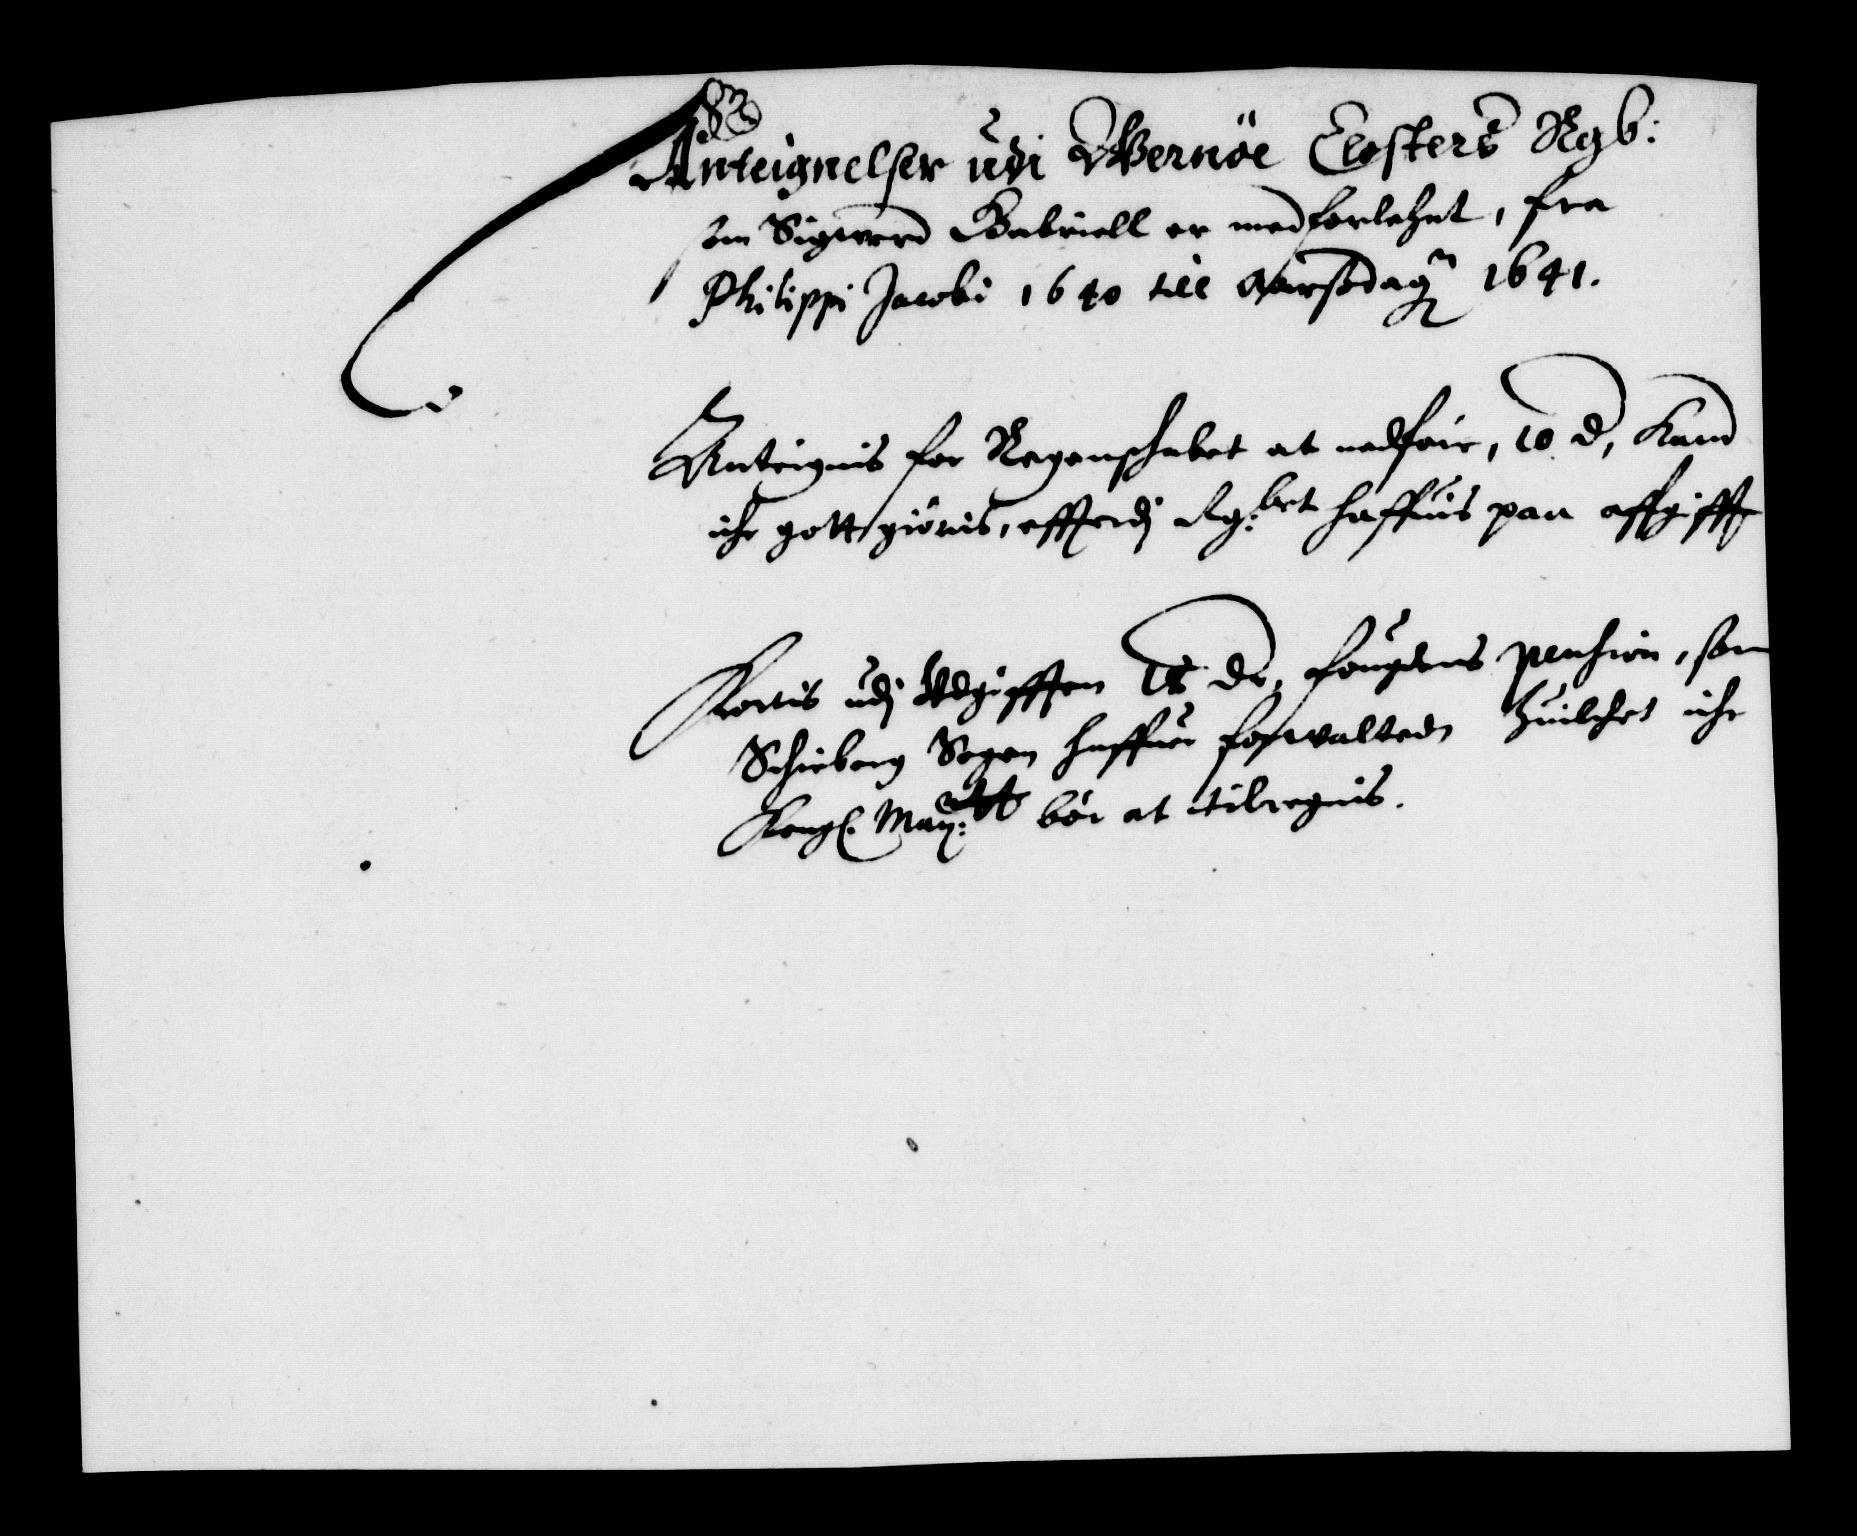 Anteignelser udi Wernöe Closters Rgb:
som Sigwerd Gabriell er med forlehnt, fra
Philippi Jacobi 1640 till Aarssdagn 1641.
Anteignis for Regenschabet at nedföir, 10 d, kand
iche gott giöris, effterdj Rg:bet haffuis paa affgifft
Kortis udj Udgifften d, fougdens pension, som
Schieberg Sogen haffuer forwalted huilchet iche
Kongl. May:tt bör at tilregnis.